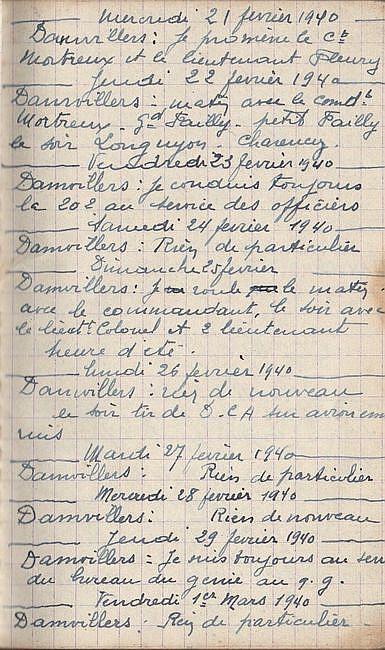 Mercredi 21 fevrier 1940
Damvillers: Je promène le Ct
Mortreux et le lieutenant Fleury
Jeudi 22 fevrier 1940
Damvillers: matin avec le comdt
Mortreux. Gd Failly. petit Failly
le soir Longuyon. Charency.
Vendredi 23 fevrier 1940
Damvillers: Je conduis toujours
la 202 au service des officiers
Samedi 24 fevrier 1940
Damvillers: Rien de particulier
Dimanche 25 fevrier
Damvillers: Je roule le matin
avec le commandant, le soir avec
le lieutt Colonel et 2 lieutenant
heure d'été.
Lundi 26 fevrier 1940
Damvillers: rien de nouveau
le soir tir de D.C.A sur avion enne
mis
Mardi 27 fevrier 1940
Damvillers: Rien de particulier
Mercredi 28 fevrier 1940
Damvillers: Rien de nouveau
Jeudi 29 fevrier 1940
Damvillers: Je suis toujours au ser
du bureau du genie au q.g.
Vendredi 1er Mars 1940
Damvillers: Rien de particulier